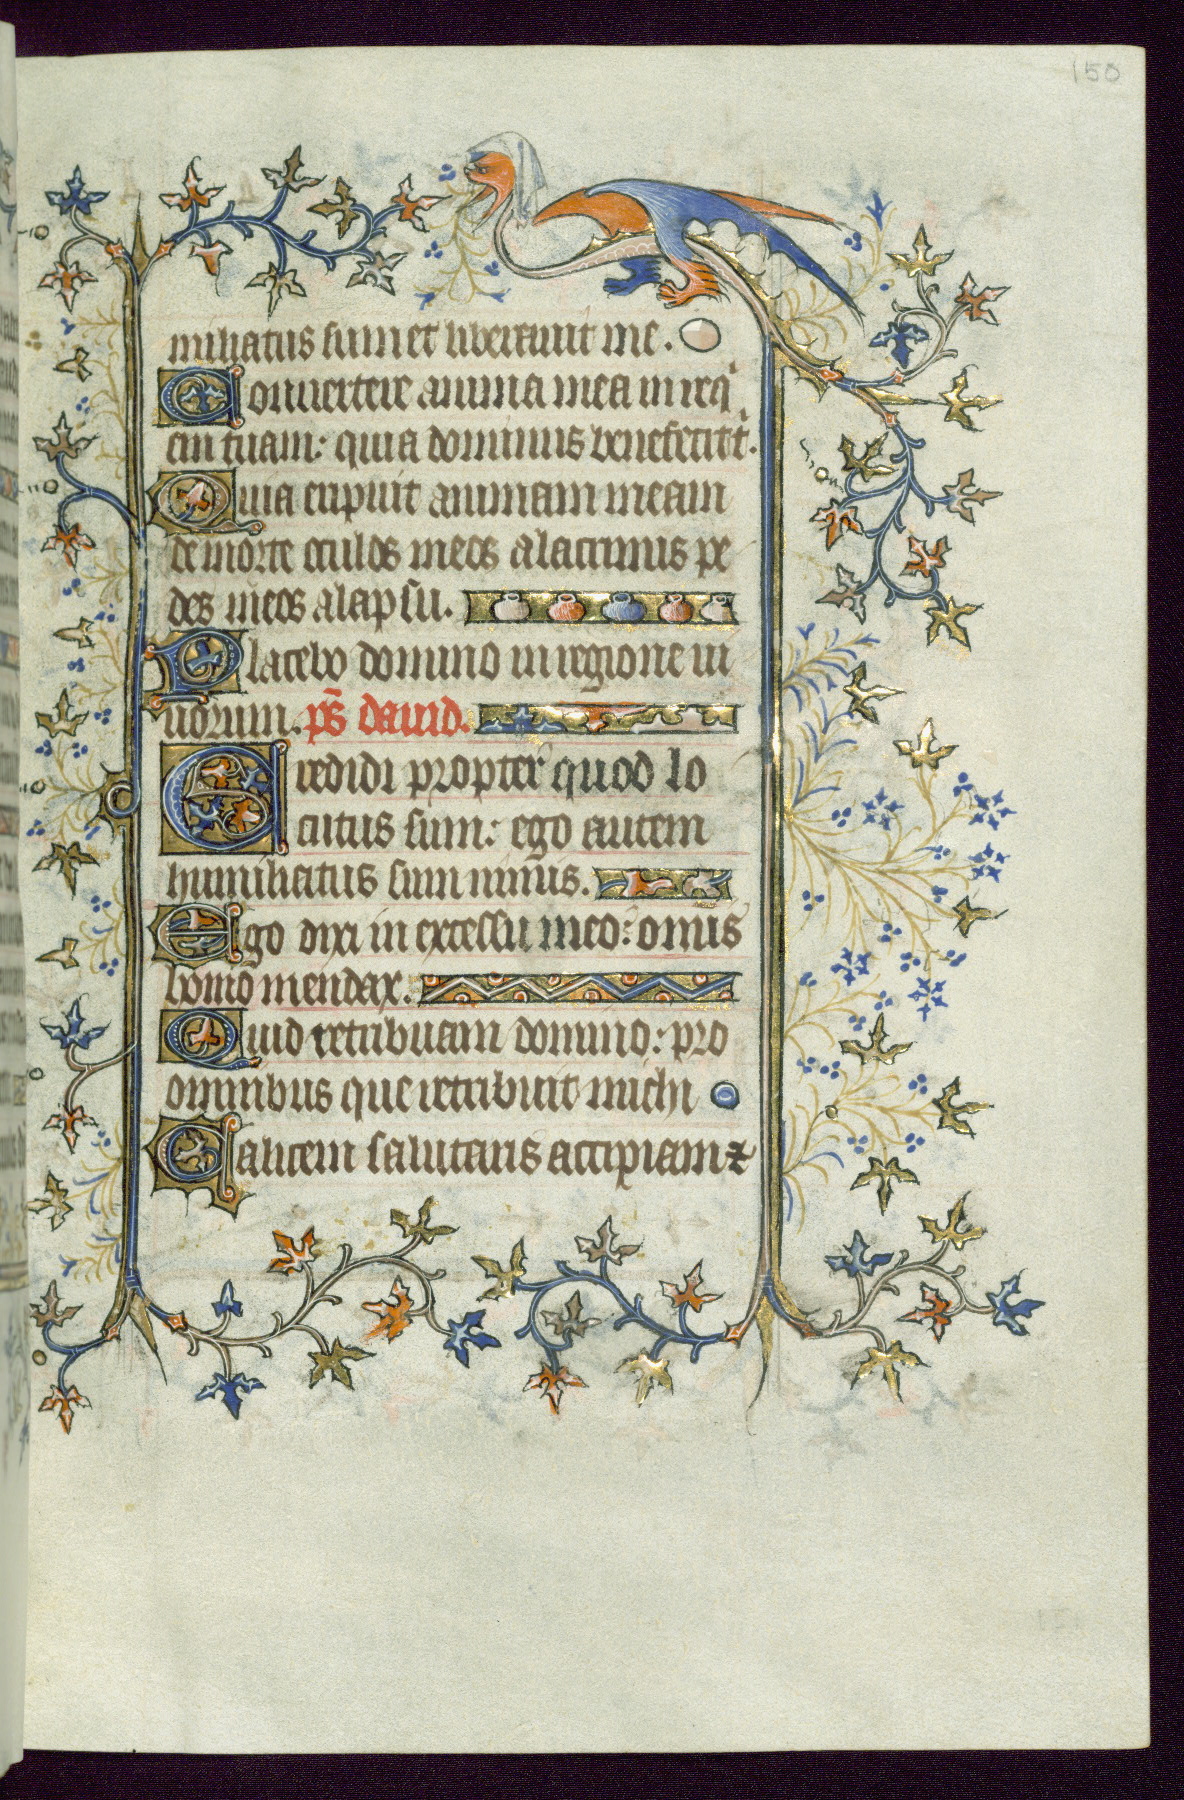 150
miliatus sum et liberauit me.
Conuertere anima mea in req̇
em tuam: quia dominus benefecit t̾.
Quia eripuit animam meam
de morte oculos meos a lacrimis pe
des meos a lapsu.
Placebo domino in regione ui
uorum. ps̄ dauid.
Credidi propter quod lo
cutus sum: ego autem
humiliatus sum nimis.
Ego dixi in excessu meo: omīs
homo mendax.
Quid retribuam domino: pro
omnibus que retribuit michi
Calicem salutaris accipiam ⁊